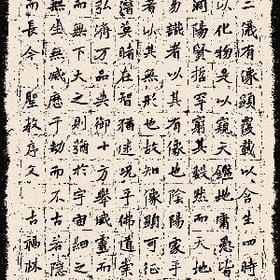 二儀有像顯覆載以含生四時
以化物是以窺天鑑地庸愚皆
洞陽賢哲罕窮其數然而天地
易識者以其有像也陰陽處乎
者以其無形也故知像顯可徵
潛莫睹在智猶迷況乎佛道崇
弘濟万品典御十方舉威靈而
而無下大之則彌於宇宙細之
無生無滅歷千劫而不古若隱
而長今聖教序文古福林